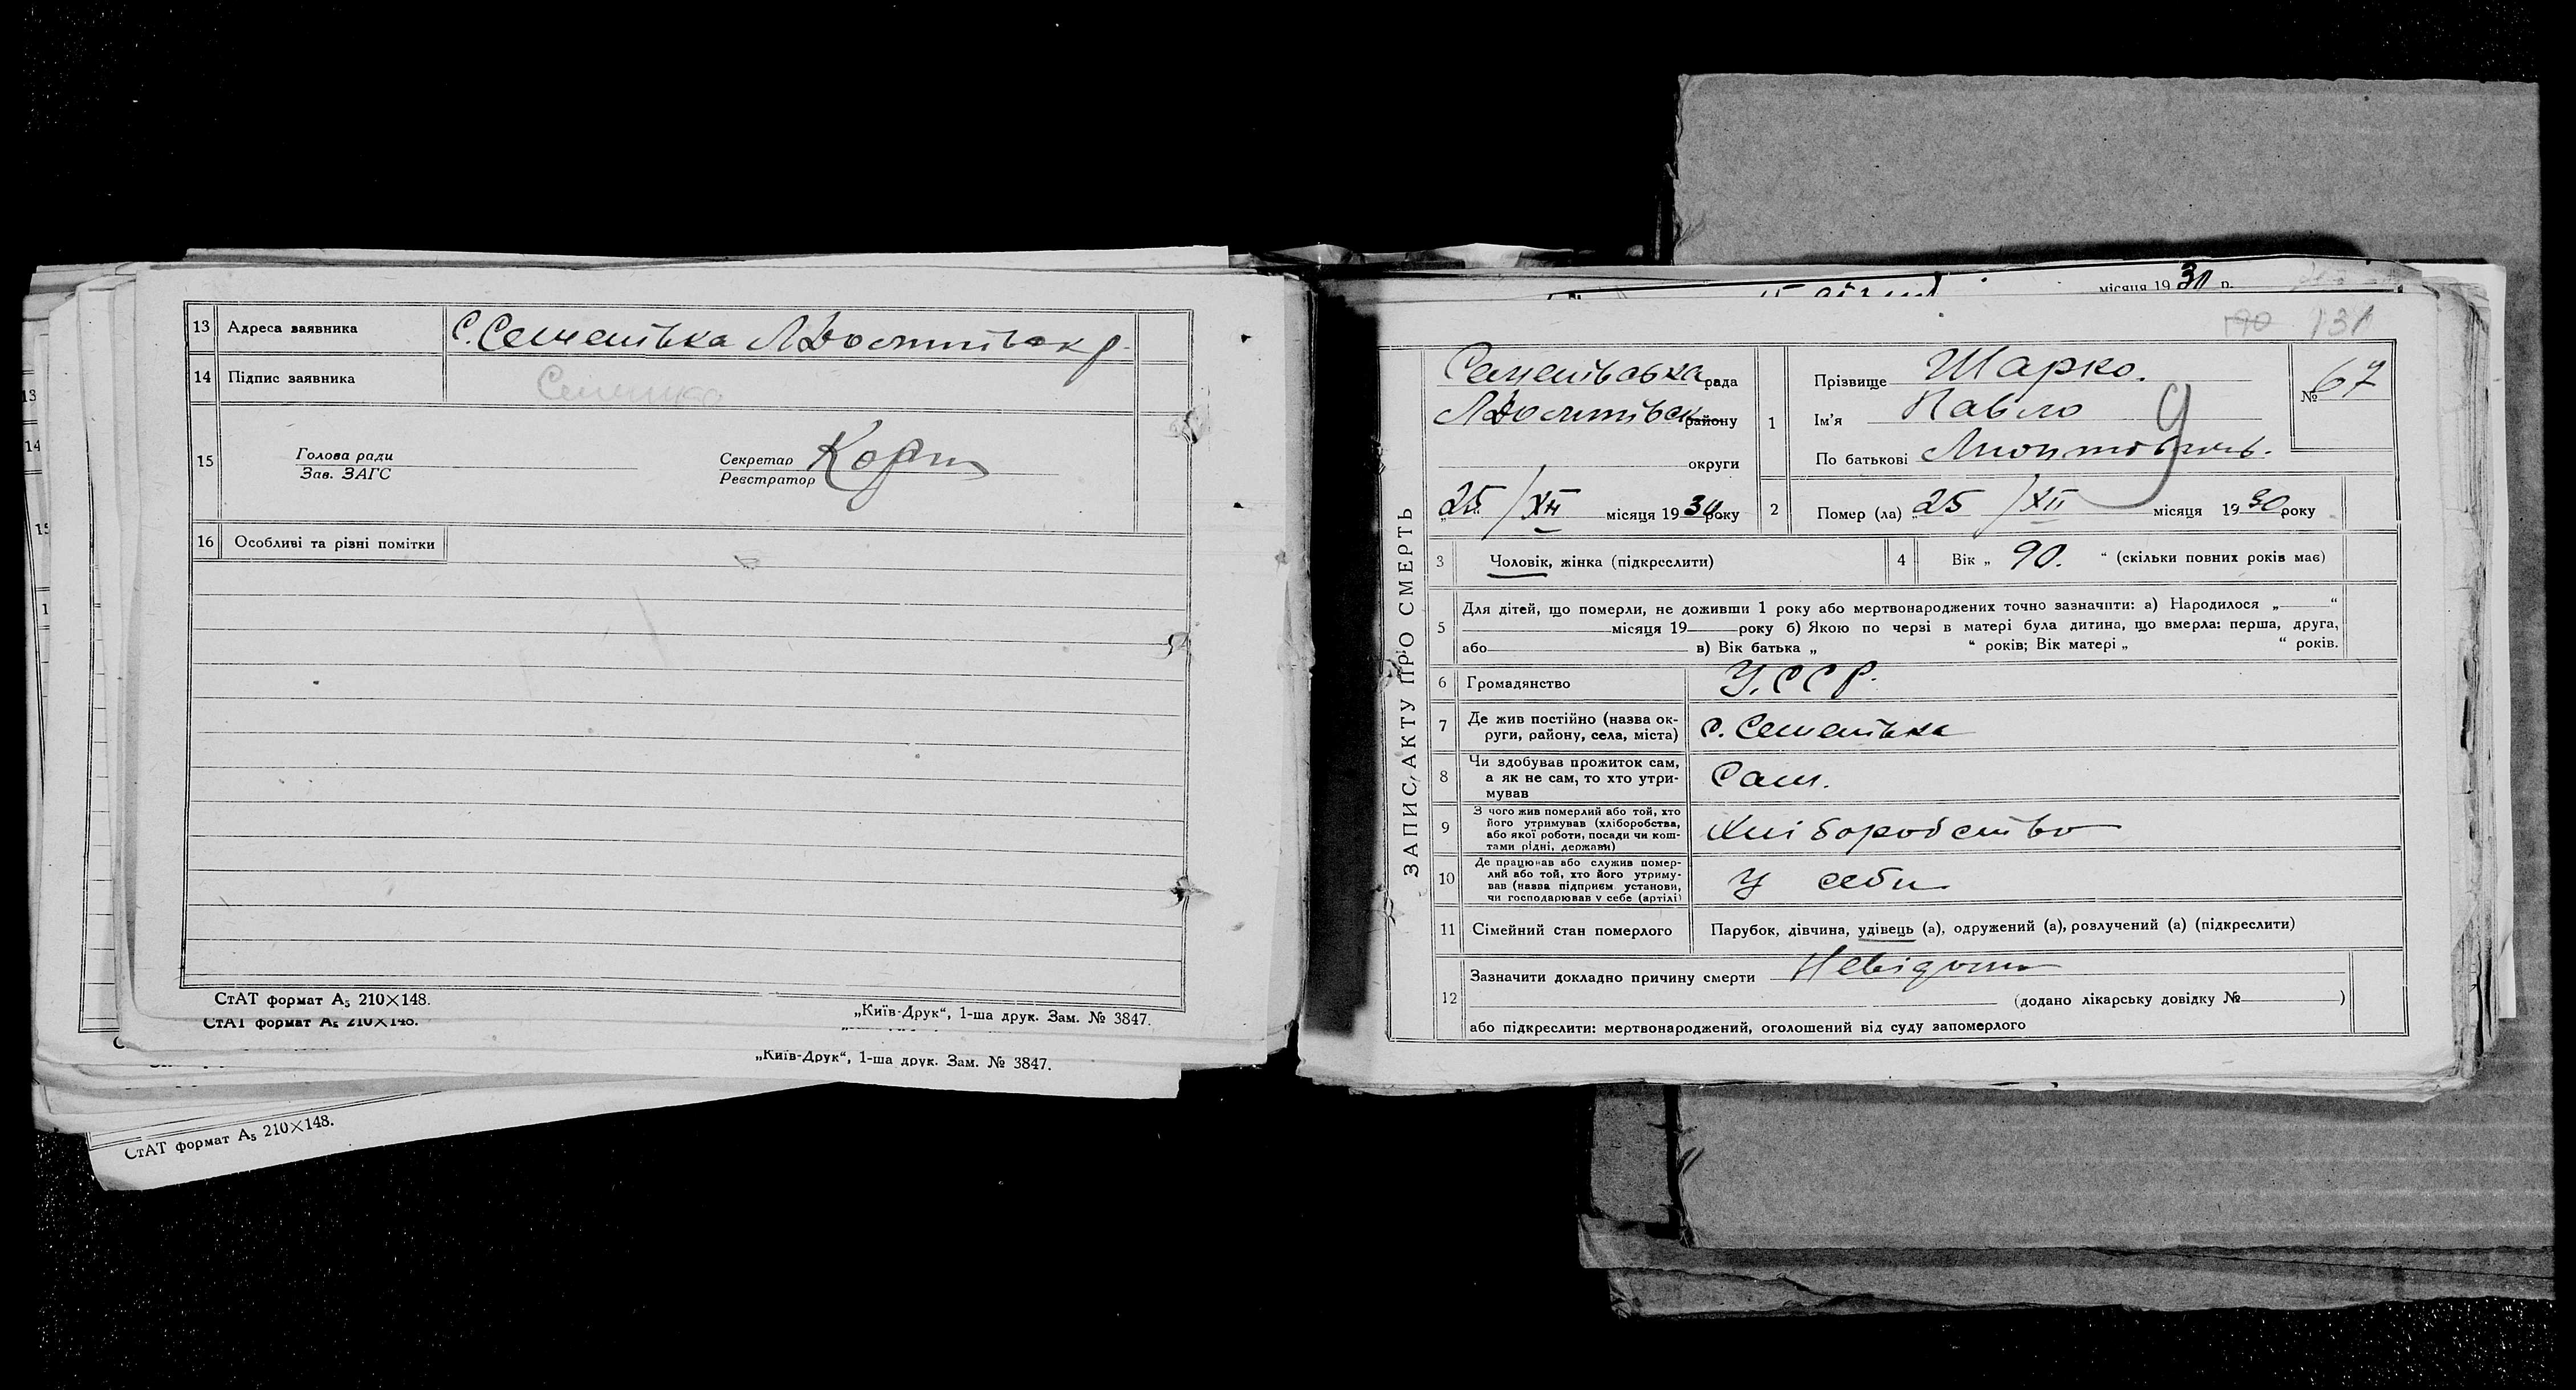 13 Адреса заявника С. Семенівка
14 Підпис заявника
15 Голова ради
Зав. ЗАГС
Секретар
Реєстратор
16 Особливі та різні помітки
СтАТ формат А₅ 210×148.
„Київ-Друк“, 1-ша друк. Зам. № 3847.
СтАТ формат А₅ 210×148.
„Київ-Друк“, 1-ша друк. Зам. № 3847.
СтАТ формат А₅ 210×148.
місяця 1930 р.
190 131
ЗАПИС АКТУ ПРО СМЕРТЬ
Семенівська рада
району
округи
25/XII місяця 1930 року
1 Прізвище Шарко.
Ім'я Павло
По батькові
№ 67
2 Помер (ла) „25/XII місяця 1930 року
3 Чоловік, жінка (підкреслити)
4 Вік „ 90. “ (скільки повних років має)
5 Для дітей, що померли, не доживши 1 року або мертвонароджених точно зазначити: а) Народилося „ “
місяця 19 року б) Якою по черзі в матері була дитина, що вмерла: перша, друга,
або в) Вік батька „ “ років; Вік матері „ “ років.
6 Громадянство У.С.С.Р.
7 Де жив постійно (назва ок-
руги, району, села, міста) с. Семенівка
8 Чи здобував прожиток сам,
а як не сам, то хто утри-
мував Сам.
9 З чого жив померлий або той, хто
його утримував (хліборобства,
або якої роботи, посади чи кош-
тами рідні, держави) Хліборобство
10 Де працював або служив помер-
лий або той, хто його утриму-
вав (назва підприєм. установи,
чи господарював у себе (артілі) У себи
11 Сімейний стан померлого Парубок, дівчина, удівець (а), одружений (а), розлучений (а) (підкреслити)
12 Зазначити докладно причину смерти Невідомо
(додано лікарську довідку № )
або підкреслити: мертвонароджений, оголошений від суду запомерлого